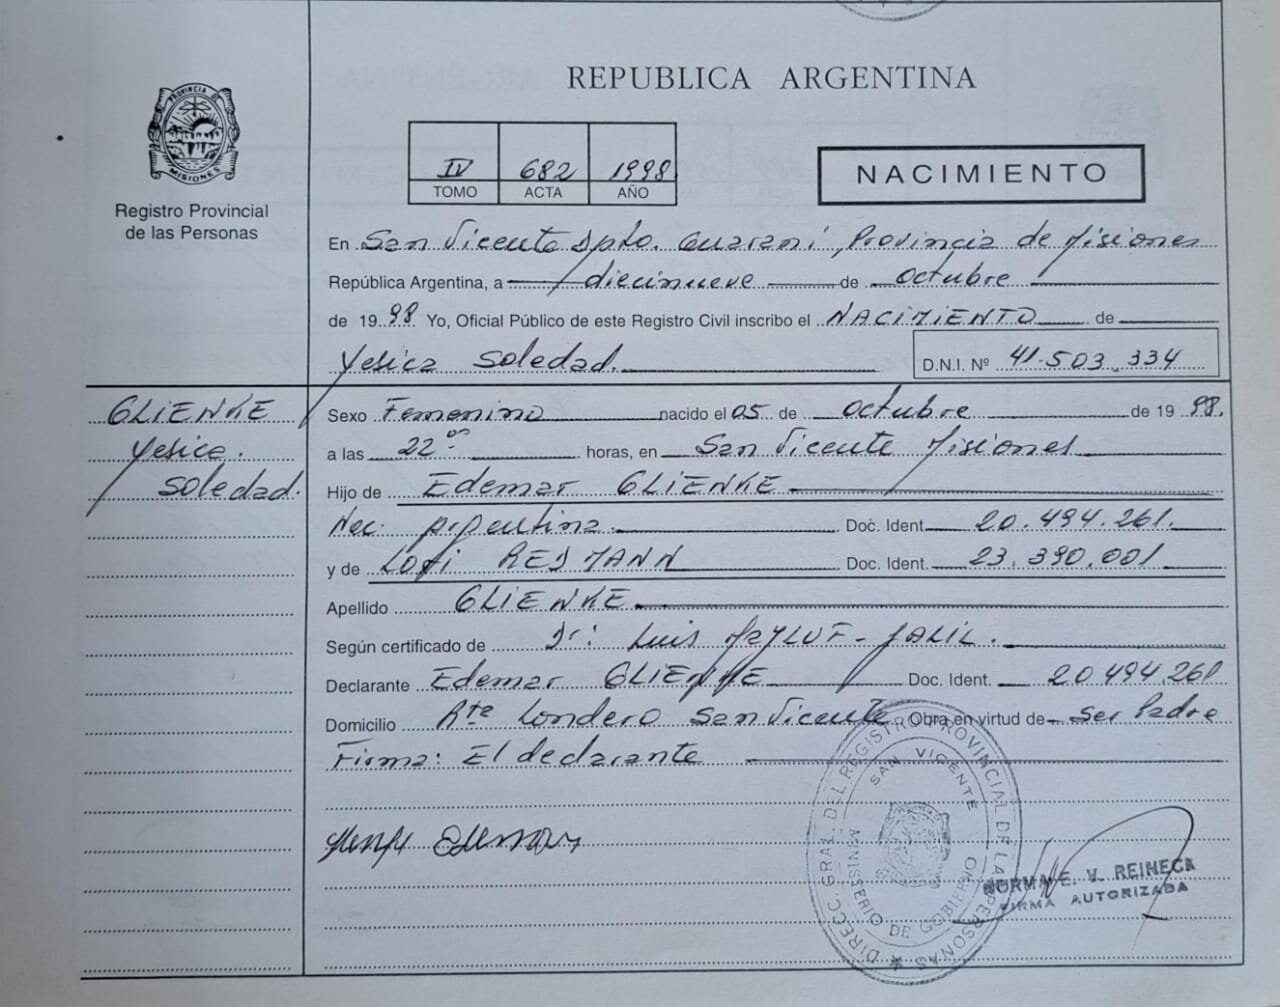 REPUBLICA ARGENTINA
PROVINCIA DE
MISIONES
Registro Provincial
de las Personas
IV 682 1998
TOMO ACTA AÑO
NACIMIENTO
En San Vicente Dpto. Guaraní, Provincia de Misiones
República Argentina, a diecinueve de octubre
de 1998. Yo, Oficial Público de este Registro Civil inscribo el NACIMIENTO de
Yesica Soledad. D.N.I. Nº 41.503.334
GLIENKE
Yesica.
Soledad.
Sexo Femenino nacido el 05 de octubre de 1998.
a las 22 horas, en San Vicente Misiones
Hijo de Edemar GLIENKE
Nac. Argentina. Doc. Ident. 20.494.261.
y de REDMANN Doc. Ident. 23.390.001
Apellido GLIENKE
Según certificado de Dr: Luis JALIL.
Declarante Edemar GLIENKE Doc. Ident. 20.494.261
Domicilio Rta Londero San Vicente. Obra en virtud de Ser Padre
Firma: El declarante
DIRECC. GRAL. DEL REGISTRO PROVINCIAL DE LAS PERSONAS
SAN VICENTE
MINISTERIO DE GOBIERNO
NORMA E. V. REINECA
FIRMA AUTORIZADA